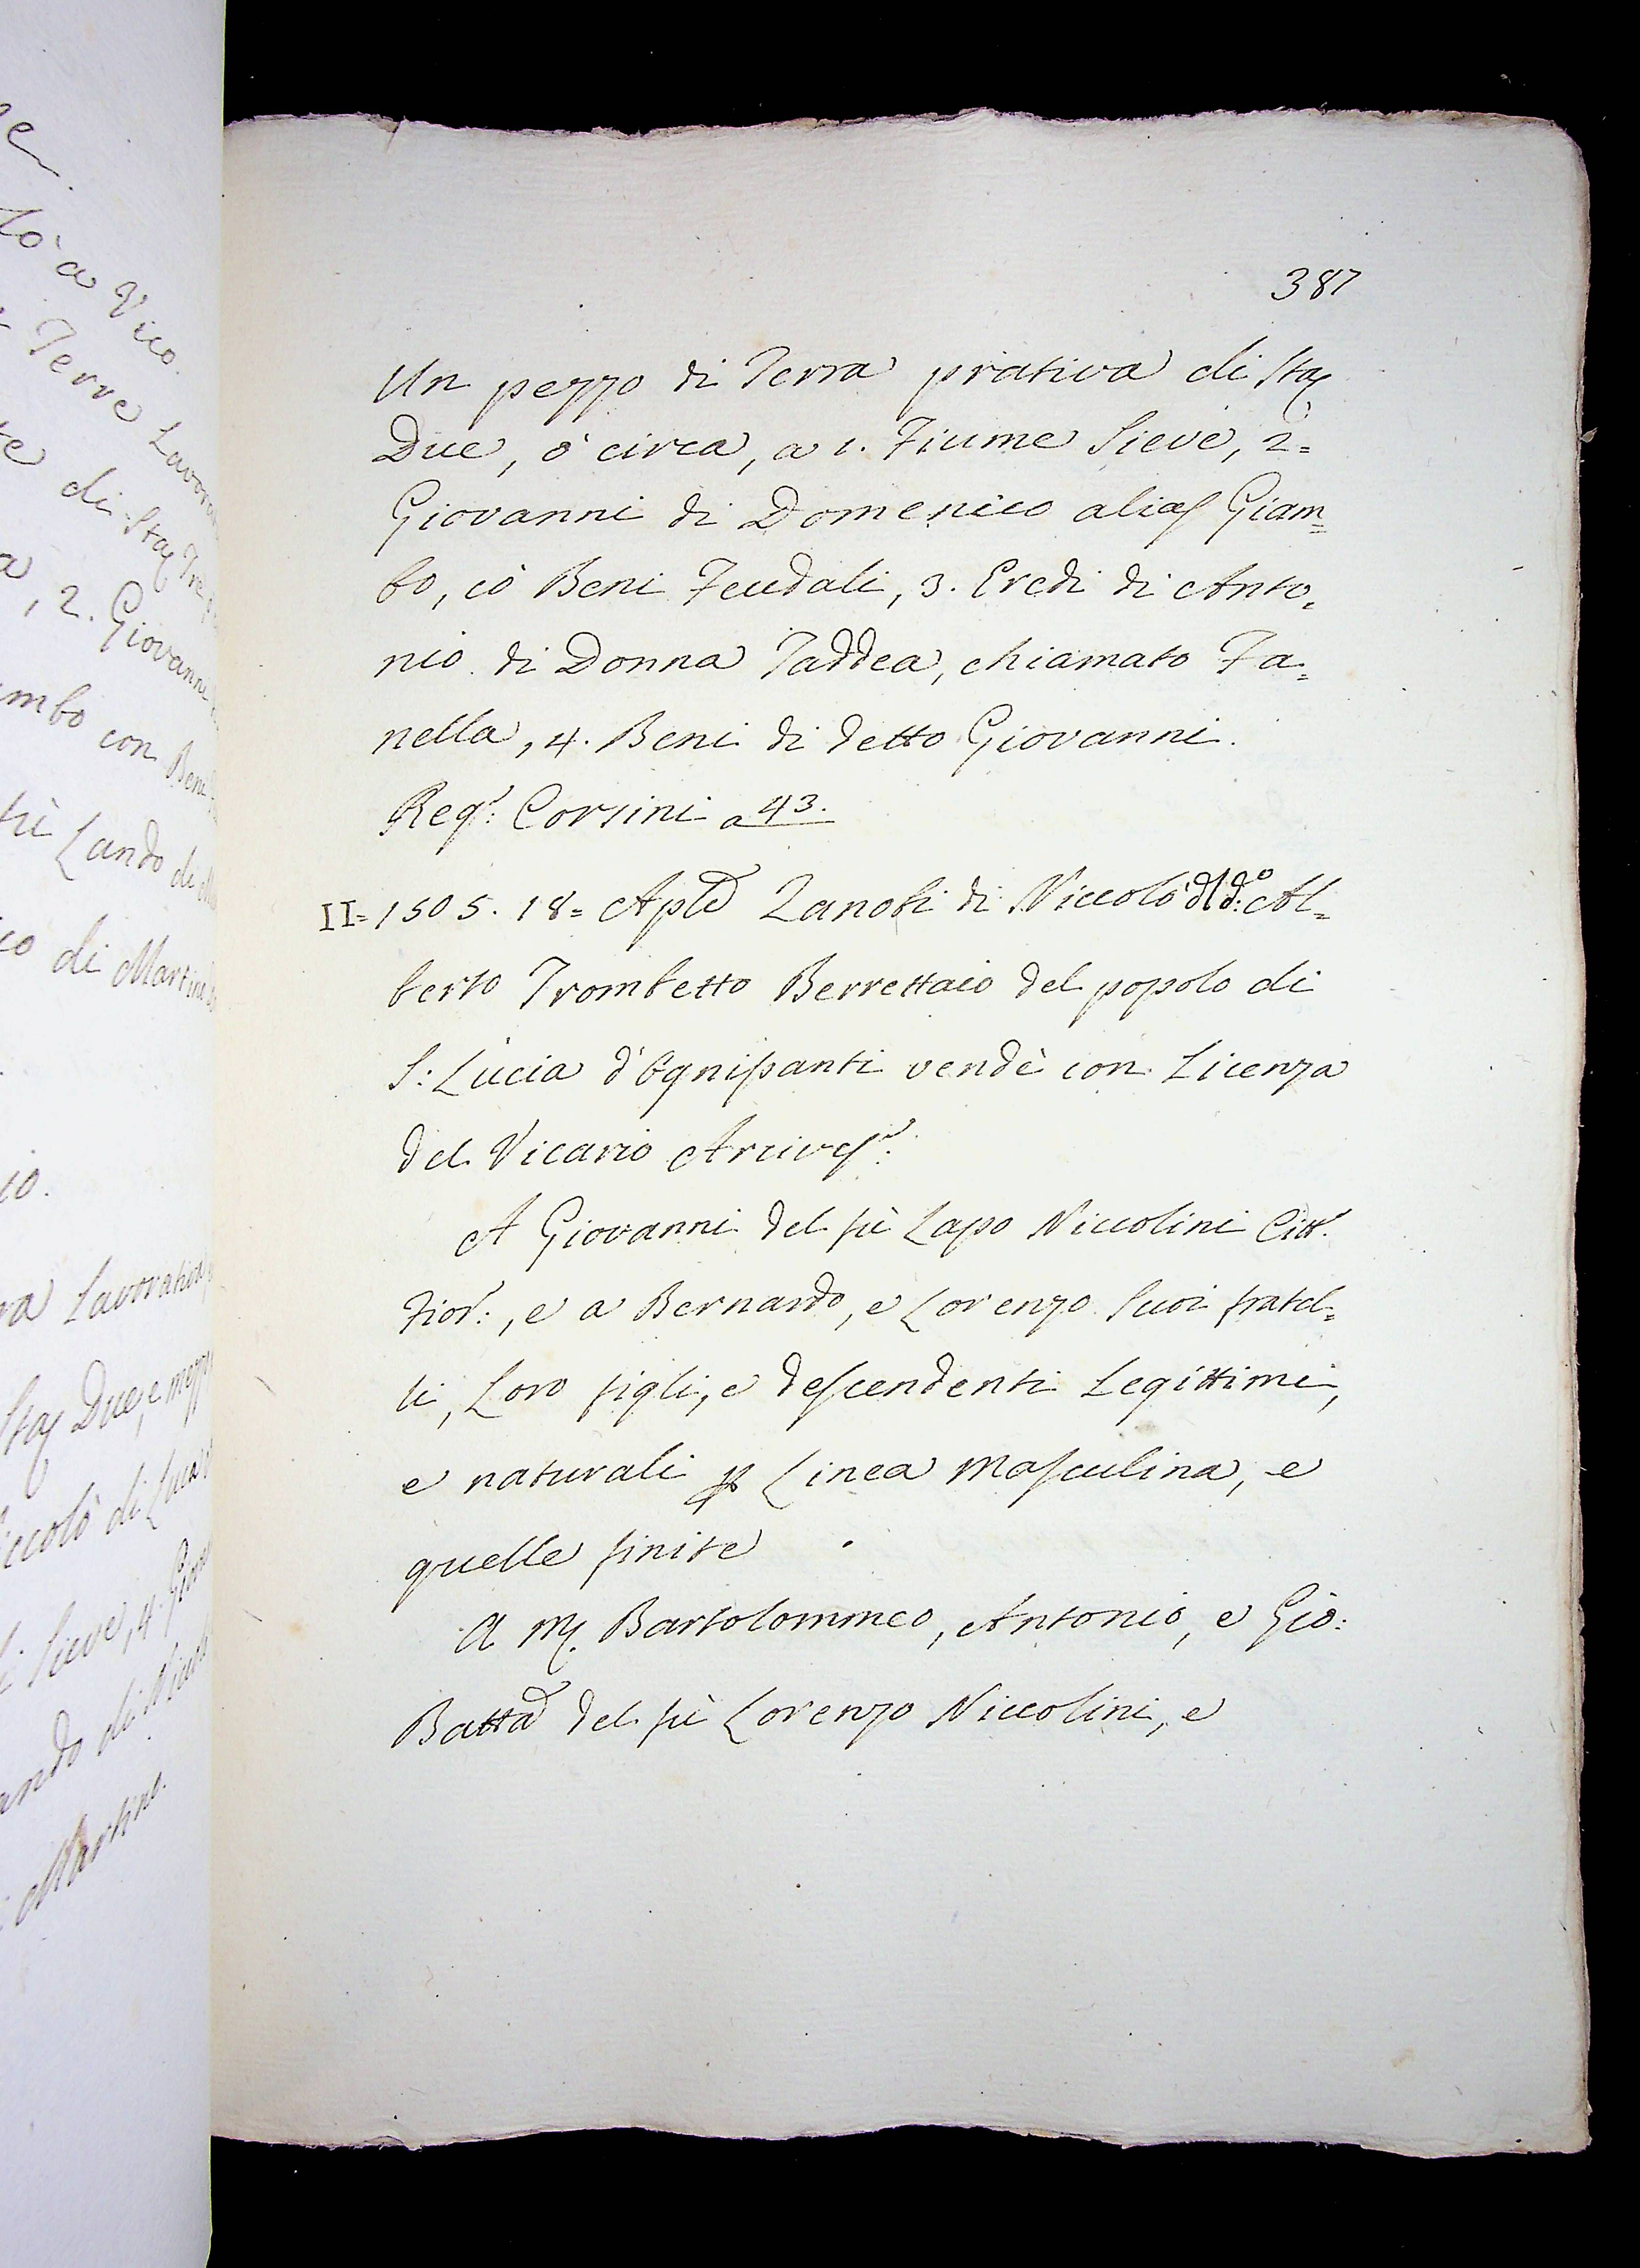 387
Un pezzo di Terra prativa di Stas
Due, ò circa, a 1. Fiume Sieve, 2=
Giovanni di Domenico alias Giam=
bo, cò Beni Feudali, 3. Eredi di Anto=
nio di Donna Taddea, chiamato Fa=
nella, 4. Beni di detto Giovanni.
Reg.: Corsini a 43.
II= 1505. 18= Aple Zanobi di Niccolò d'd:o Al=
berto Trombetto Berrettaio del popolo di
S: Lucia d'Ognissanti vendè con Licenza
del Vicario Arcives.:
A Giovanni del fù Lapo Niccolini Citt.
Fior.:, e a Bernardo, e Lorenzo Suoi fratel=
li, Loro figli, e descendenti Legittimi,
e naturali p Linea Masculina, e
quelle finite
A Ms. Bartolommeo, Antonio, e Gio:
Batta del fù Lorenzo Niccolini, e
a Vico.
Terre Lavora
di Stas Tre
a, 2. Giovanni
mbo con Beni
fù Lando di
di Martino
io.
ra Lavorativa
Stas Due, e mezzo
iccolò di Luca
Sieve, 4. Giov
ando di Niccolò
Martino.